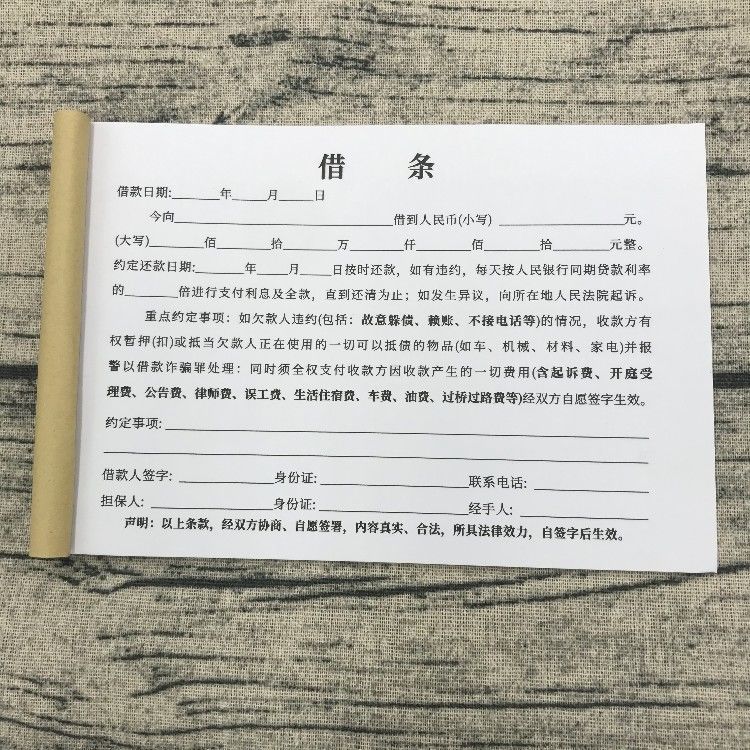 借 条
借款日期:_______年_____月_____日
今向______________________________借到人民币(小写) _________________元。
(大写)________佰________拾________万________仟________佰________拾________元整。
约定还款日期:_______年______月_____日按时还款，如有违约，每天按人民银行同期贷款利率
的________倍进行支付利息及全款，直到还清为止；如发生异议，向所在地人民法院起诉。
重点约定事项：如欠款人违约(包括：故意躲债、赖账、不接电话等)的情况，收款方有
权暂押(扣)或抵当欠款人正在使用的一切可以抵债的物品(如车、机械、材料、家电)并报
警以借款诈骗罪处理：同时须全权支付收款方因收款产生的一切费用(含起诉费、开庭受
理费、公告费、律师费、误工费、生活住宿费、车费、油费、过桥过路费等)经双方自愿签字生效。
约定事项:
借款人签字: ______________身份证: ______________________联系电话: _________________
担保人: __________________身份证: ______________________经手人: ___________________
声明：以上条款，经双方协商、自愿签署，内容真实、合法，所具法律效力，自签字后生效。